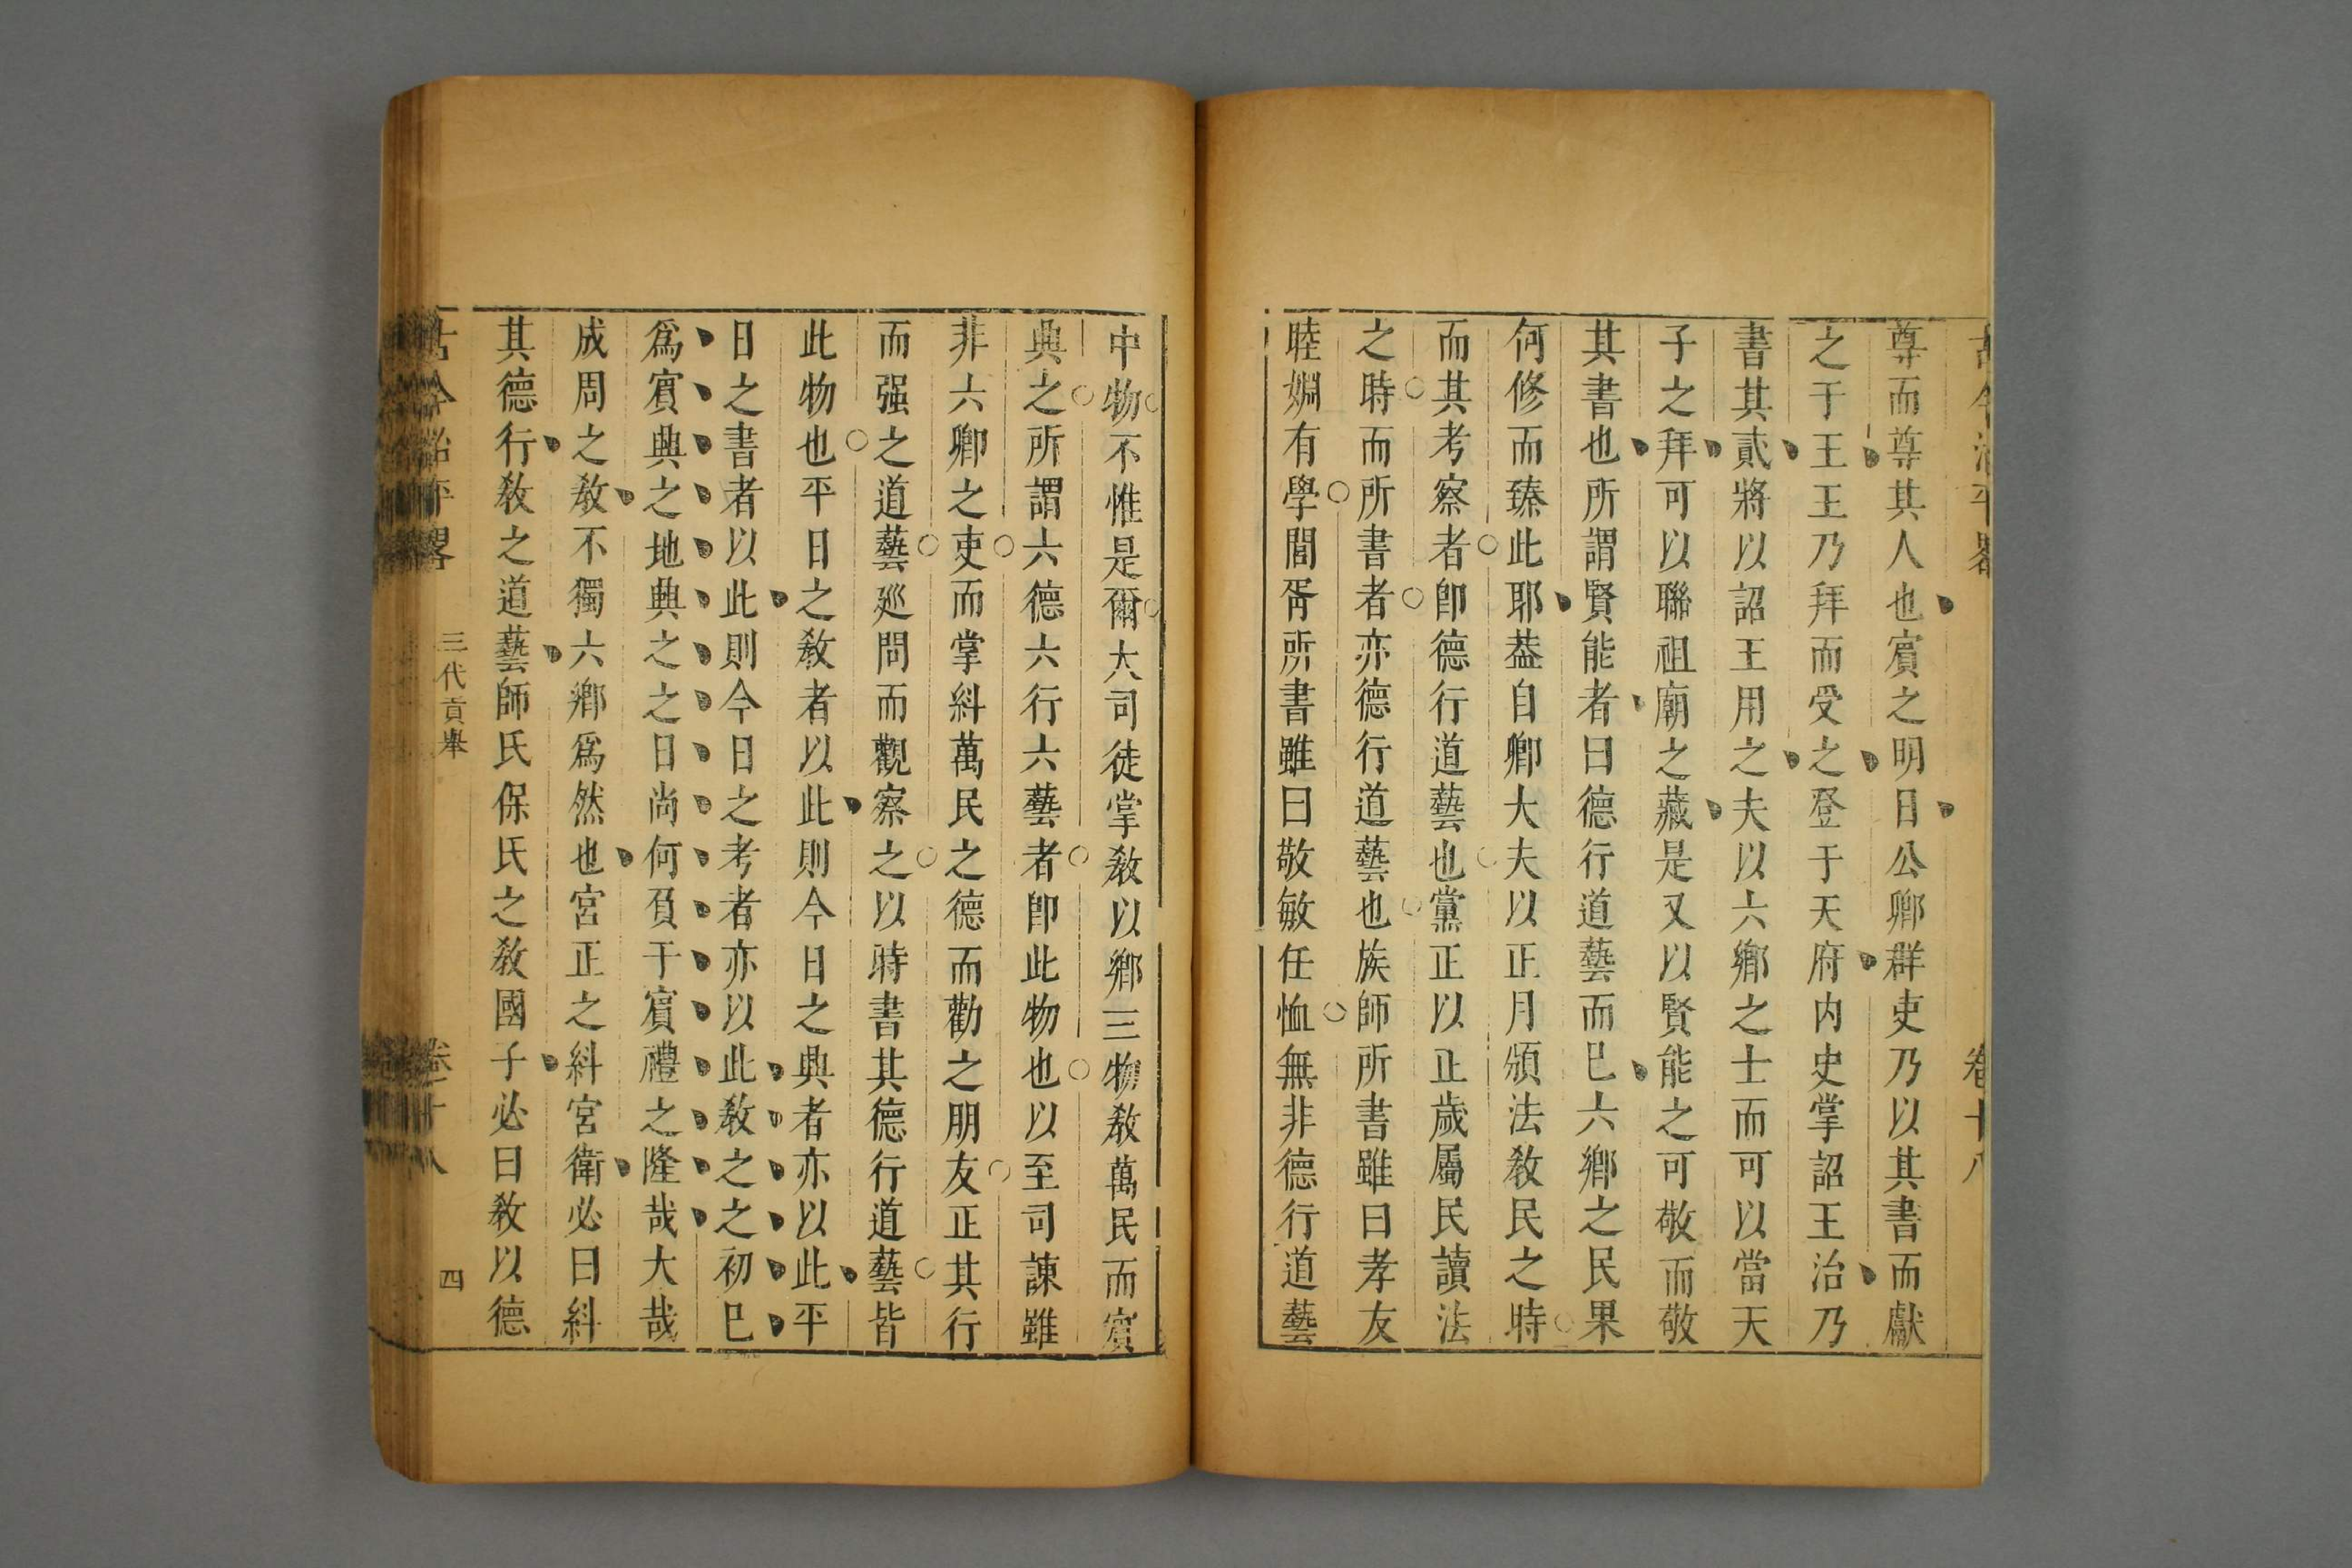 古今治平畧
卷十八
尊而尊其人也賔之明日公卿群吏乃以其書而獻
之于王王乃拜而受之登于天府内史掌詔王治乃
書其貳將以詔王用之夫以六鄉之士而可以當天
子之拜可以聯祖廟之藏是又以賢能之可敬而敬
其書也所謂賢能者曰德行道藝而巳六鄉之民果
何修而臻此耶葢自卿大夫以正月頒法教民之時
而其考察者卽德行道藝也黨正以正歲屬民讀法
之時而所書者亦德行道藝也族師所書雖曰孝友
睦婣有學閭胥所書雖曰敬敏任恤無非德行道藝
中物不惟是爾大司徒掌敎以鄉三物敎萬民而賔
典之所謂六德六行六藝者卽此物也以至司諫雖
非六卿之吏而掌糾萬民之德而勸之朋友正其行
而强之道藝廵問而觀察之以時書其德行道藝皆
此物也平日之敎者以此則今日之典者亦以此平
日之書者以此則今日之考者亦以此敎之之初巳
爲賔典之地典之之日尚何負于賔禮之隆哉大哉
成周之敎不獨六鄉爲然也宮正之糾宮衛必曰糾
其德行敎之道藝師氏保氏之敎國子必曰敎以德
古今治平畧
三代貢舉
卷十八
四